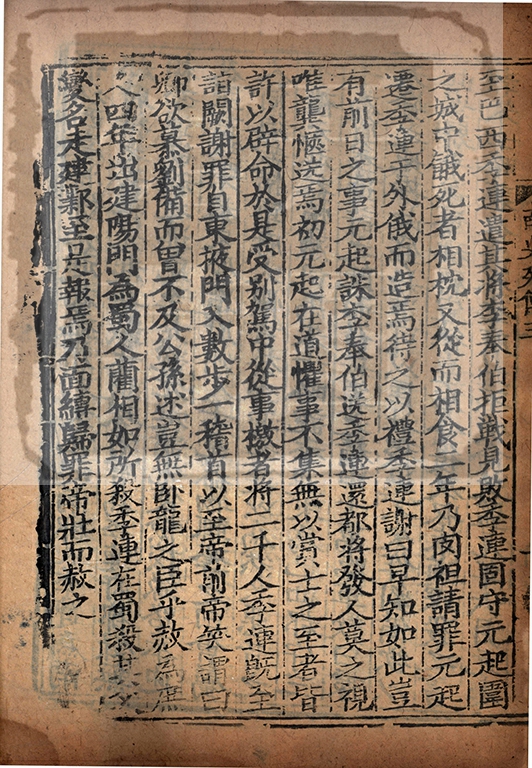 至巴西季連遣其將李奉伯拒戰見敗季連固守元起圍
之城中餓死者相枕又從而相食二年乃肉袒請罪元起
遷季連于外俄而造焉待之以禮季連謝曰早知如此豈
有前日之事元起誅李奉伯送季連還都將發人莫之視
唯龔愜送焉初元起在道懼事不集無以賞士之至者皆
許以辟命於是受別駕中從事檄者將二千人季連既至
詣闕謝罪自東掖門入數步一稽首以至帝前帝笑謂曰
卿欲慕劉備而曾不及公孫述豈無卧龍之臣乎赦為庶
人四年出建陽門為蜀人藺相如所殺季連在蜀殺其父
變名走建鄴至是報焉乃面縛歸罪帝壯而赦之